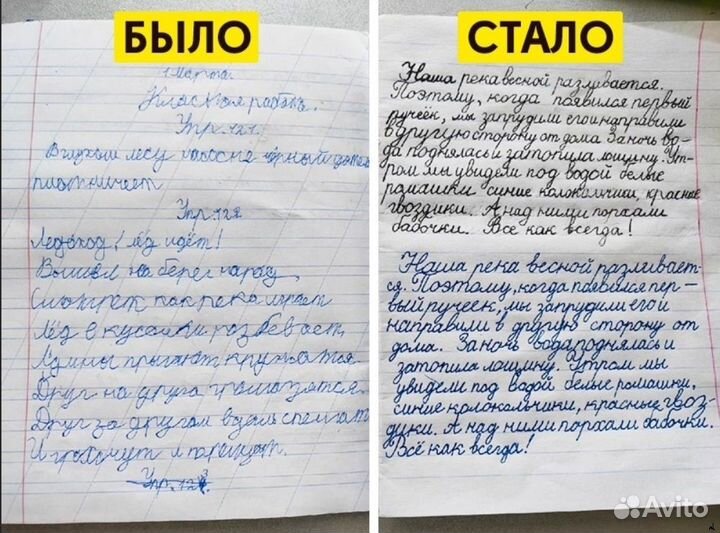 БЫЛО
1 Марта.
Класная работа.
Упр. 121.
В глухом лесу на сосне чёрный дятел
плотничает
Упр. 122
Ледоход! Лёд идёт!
Вышел на берег народ
Смотреть как река играет
Лёд в кусочки разбевает,
Льдины прыгают кружатся
Друг на друга громоздятся
Друг за другом вдаль спешат
И грохочут и трещат.
Упр. 123.
СТАЛО
Наша река весной разливается.
Поэтому, когда появился первый
ручеёк, мы запрудили его и направили
в другую сторону от дома. За ночь во-
да поднялась и затопила лощину. Ут-
ром мы увидели под водой белые
ромашки синие колокольчики, красные
гвоздики. А над ними порхали
бабочки. Всё как всегда!
Наша река весной разливает-
ся. Поэтому, когда появился пер-
вый ручеек, мы запрудили его и
направили в другую сторону от
дома. За ночь вода поднялась и
затопила лощину. Утром мы
увидели под водой белые ромашки,
синие колокольчики, красные гвоз-
дики. А над ними порхали бабочки.
Всё как всегда!
Avito